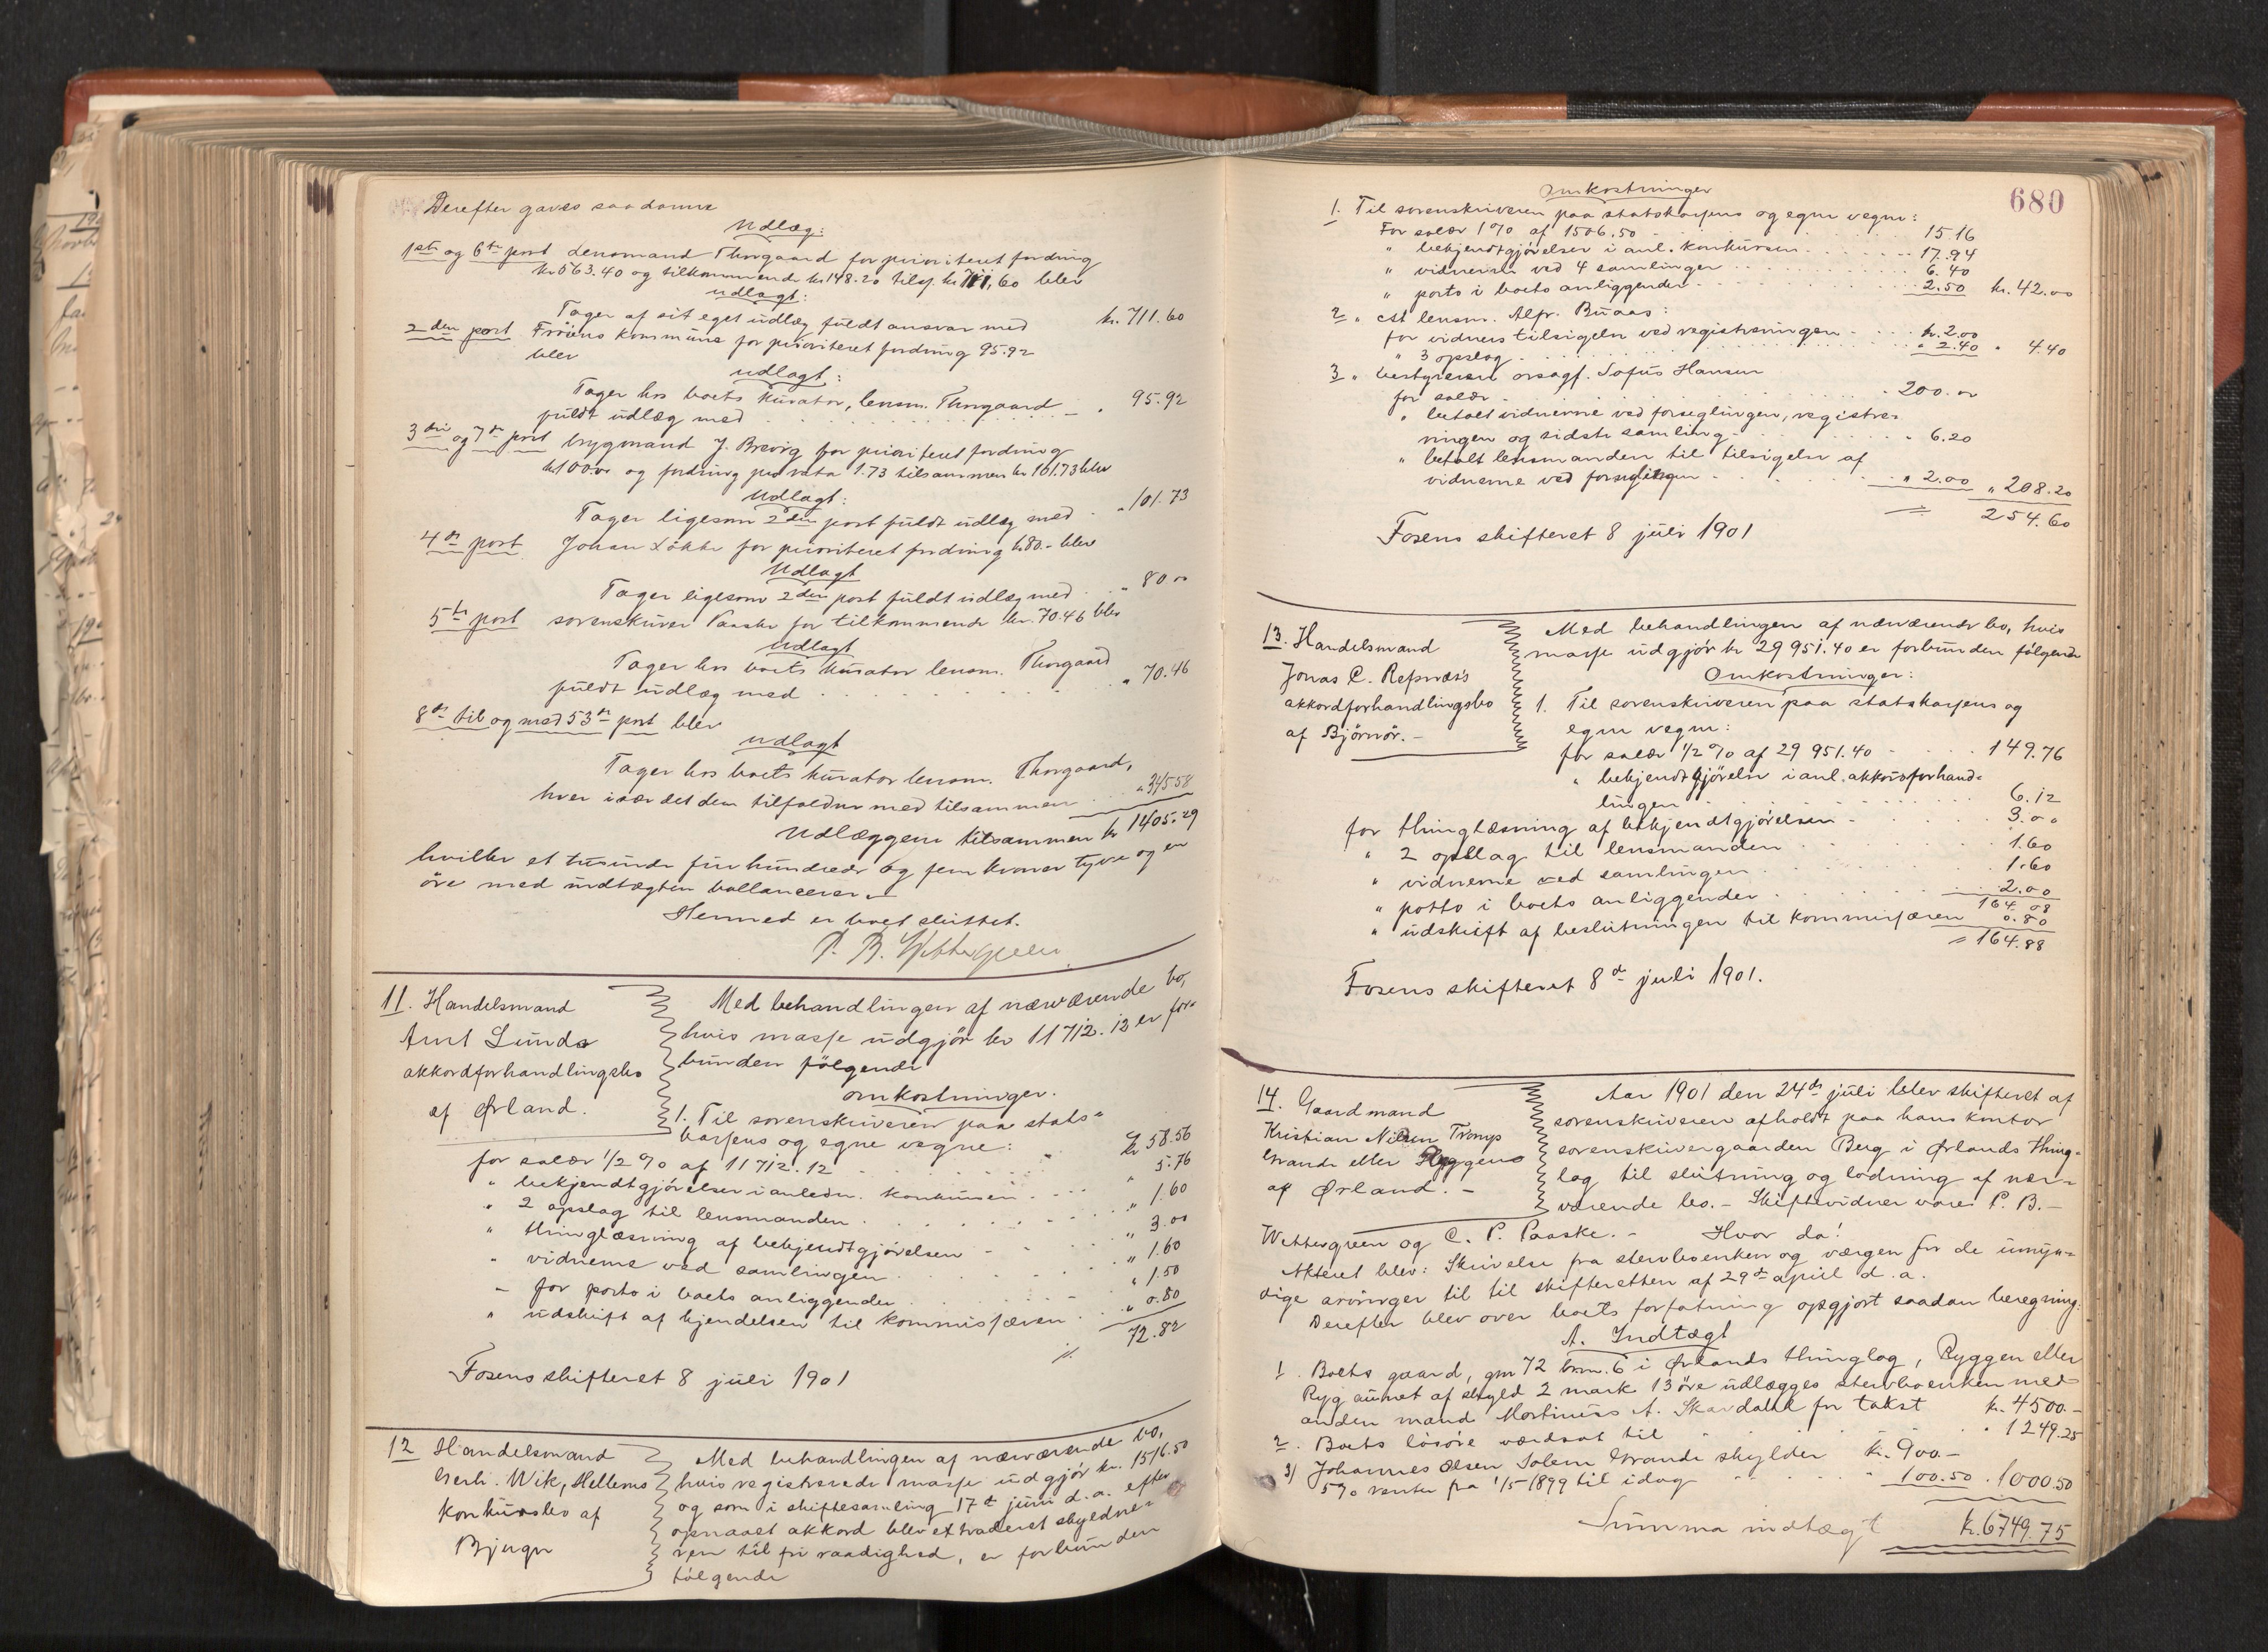 Derefter gaves saadanne
Udlæg:
1ste og 6te post lensmand Thorgaard for prioriteret fordring
kr 563.40 og tilkommende kr 148.20 tils. kr 711,60 blev
udlagt:
Tager af sit eget udlæg fuldt ansvar med kr. 711.60
2den post Frøiens kommune for prioriteret fordring 95.92
blev
udlagt:
Tager hos boets kurator, lensm. Thorgaard
fuldt udlæg med " 95.92
3die og 7de post brygmand J. Brevig for prioriteret fordring
kr 100.00 og fordring pro rata 1.73 tilsammen kr 101.73 blev
Udlagt:
Tager ligesom 2den post fuldt udlæg med " 101.73
4de post Johan Løkke for prioriteret fordring kr 80.- blev
Udlagt
Tager ligesom 2den post fuldt udlæg med " 80 00
5te post sorenskriver Paaske for tilkommende kr. 70.46 blev
Udlagt
Tager hos boets kurator lensm. Thorgaard
fuldt udlæg med " 70.46
8de til og med 53de post blev
udlagt
Tager hos boets kurator lensm. Thorgaard,
hver især det dem tilfaldne med tilsammen " 345 58
Udlæggene tilsammen kr 1405.29
hvilke et tusinde fire hundrede og fem kroner tyve og en
øre med indtægten ballancerer.-
Hermed er boet sluttet.
P. B. Wettergreen
11. Handelsmand
Arnt Lunds
akkordforhandlingsbo
af Ørland.
Med behandlingen af nærværende bo,
hvis masse udgjør kr 11712.12 er for-
bunden følgende
omkostninger.
1. Til sorenskriveren paa stats-
kassens og egne vegne:
for salær 1/2 % af 11712.12 kr 58.56
" bekjendtgjørelser i anledn. konkursen " 5.76
" 2 opslag til lensmanden " 1.60
" thinglæsning af bekjendtgjørelsen " 3.00
" vidnerne ved samlingen " 1.60
- for porto i boets anliggender " 1.50
" udskrift af kjendelsen til kommissæren " 0.80
72.82
Fosens skifteret 8 juli 1901
12 Handelsmand
Gerh. Wik, Hellems
konkursbo af
Bjugn
Med behandlingen af nærværende bo,
hvis registrerede masse udgjør kr. 1516.50
og som i skiftesamling 17de juni d.a. efter
opnaaet akkord blev extraderet skyldne-
ren til fri raadighed, er forbunden
følgende
680
Omkostninger
1. Til sorenskriveren paa statskassens og egne vegne:
For salær 1% af 1506.50 15 16
" bekjendtgjørelser i anl. konkursen 17.94
" vidnerne ved 4 samlinger 6.40
" porto i boets anliggender 2.50 kr. 42.00
2 " Til lensm. Alfr. Buaas:
for vidners tilsigelse ved registreringen kr. 2.00
" 3 opslag " 2.40 " 4.40
3 " bestyreren orsagf. Sofus Hansen
for salær 200.00
" betalt vidnerne ved forseglingen, registre-
ringen og sidste samling " 6.20
" betalt lensmanden til tilsigelse af
vidnerne ved forseglingen " 2.00 " 208.20
254.60
Fosens skifteret 8 juli 1901
13. Handelsmand
Jonas C. Refsnæs's
akkordforhandlingsbo
af Bjørnør.-
Med behandlingen af nærværende bo, hvis
masse udgjør kr 29 951.40 er forbunden følgende
Omkostninger:
1. Til sorenskriveren paa statskassens og
egne vegne:
for salær 1/2 % af 29 951.40 149.76
" bekjendtgjørelse i anl. akkordforhand-
lingen 6.12
for thinglæsning af bekjendtgjørelsen 3.00
" 2 opslag til lensmanden 1.60
" vidnerne ved samlingen 1.60
" porto i boets anliggender 2.00
164.08
" udskrift af beslutningen til kommissæren 0.80
= 164.88
Fosens skifteret 8de juli 1901.
14. Gaardmand
Kristian Nilsen Tromps
Grande eller Ryggens
af Ørland.-
Aar 1901 den 24de juli blev skifteret af
sorenskriveren afholdt paa hans kontor
sorenskrivergaarden Berg i Ørlands thing-
lag til slutning og lodning af nær-
værende bo.- Skiftevidner vare P. B.-
Wettergreen og C. P. Paaske.- Hvor da!
Akteret blev: Skrivelse fra stervboenken og værgen for de umyn-
dige arvinger til til skifteretten af 29de april d.a.
Derefter blev over boets forfatning opgjort saadan beregning:
A. Indtægt
1. Boets gaard, gn 72 brn. 6 i Ørlands thinglag, Ryggen eller
Rygaunet af skyld 2 mark 13 øre udlægges stervboenken med
anden mand Mortinius A. Skardahl for takst kr. 4500.-
2. Boets løsøre værdsat til " 1249.25
3) Johannes Olsen Solem Grande skylder kr. 900.-
5% rente fra 1/5 1899 til idag 100.50 " 1000.50
Summa indtægt kr. 6749.75